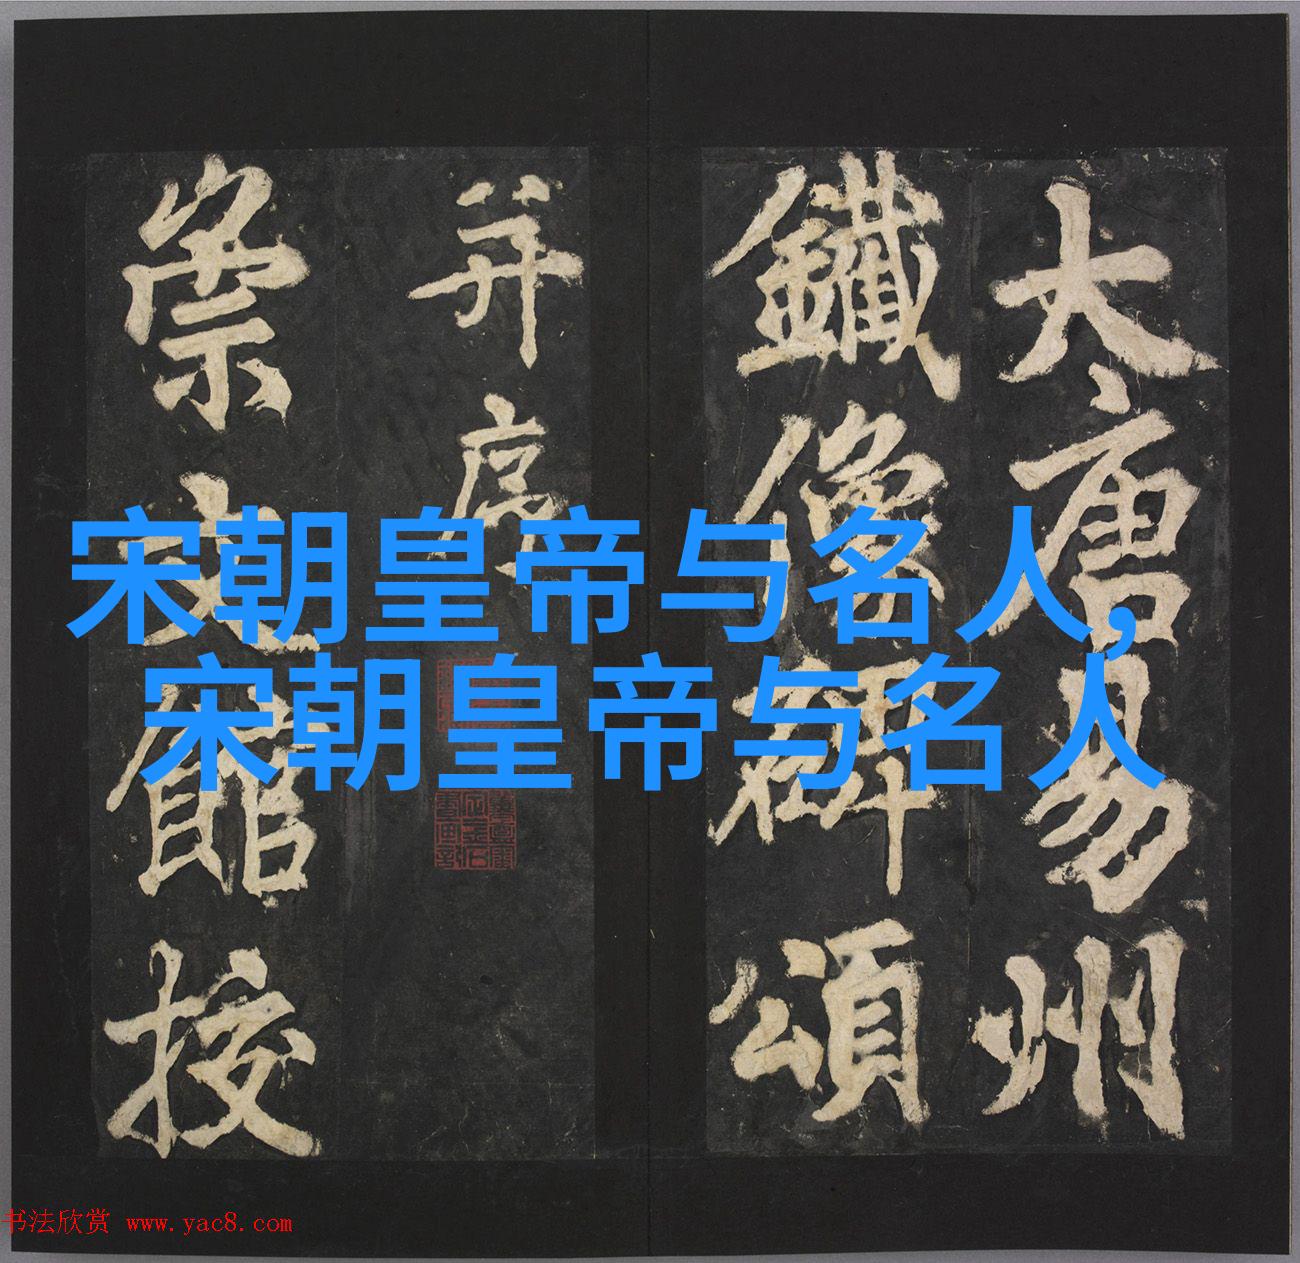 大唐易州
鐵像碑頌
并序
崇文館挍
宋朝皇帝与名人,
宋朝皇帝与名人
书法欣赏 www.yac8.com